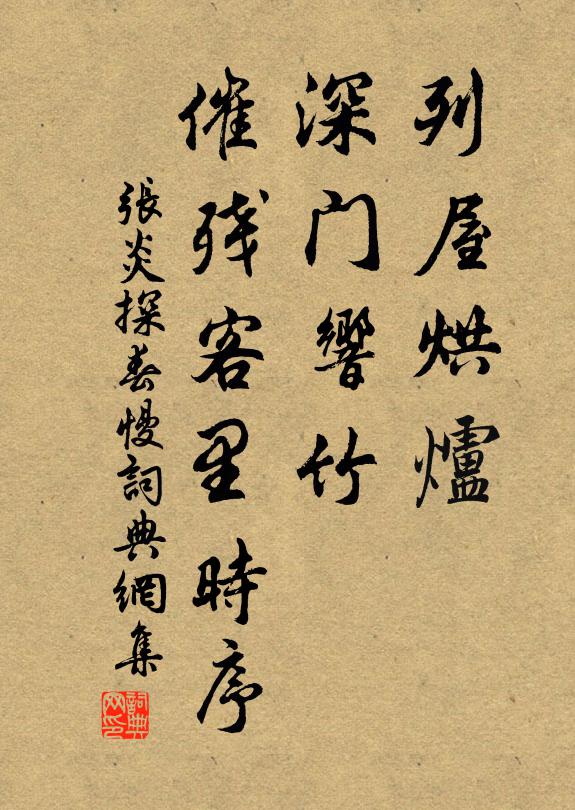 列屋烘爐
深門響竹
催残客里時序
張炎探春慢詞典網集
詞典
网印